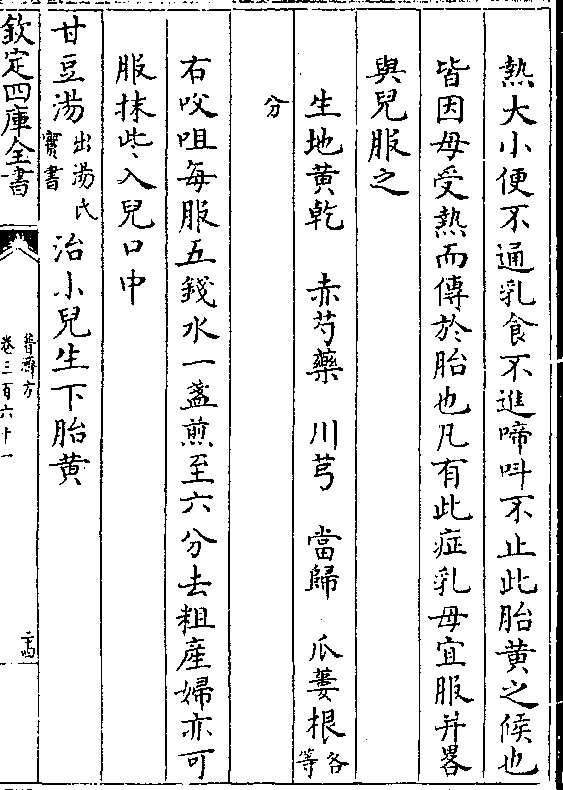 熱大小便不通乳食不進啼呌不止此胎黄之候也
皆因母受熱而傳於胎也凡有此症乳母宜服并畧
與兒服之
生地黄乾　赤芍藥　川芎　當歸　瓜蔞根各等
分
右㕮咀每服五錢水一盞煎至六分去粗產婦亦可
服抹些入兒口中
甘豆湯出湯氏寳書治小兒生下胎黄
欽定四庫全書
普濟方
卷三百六十一